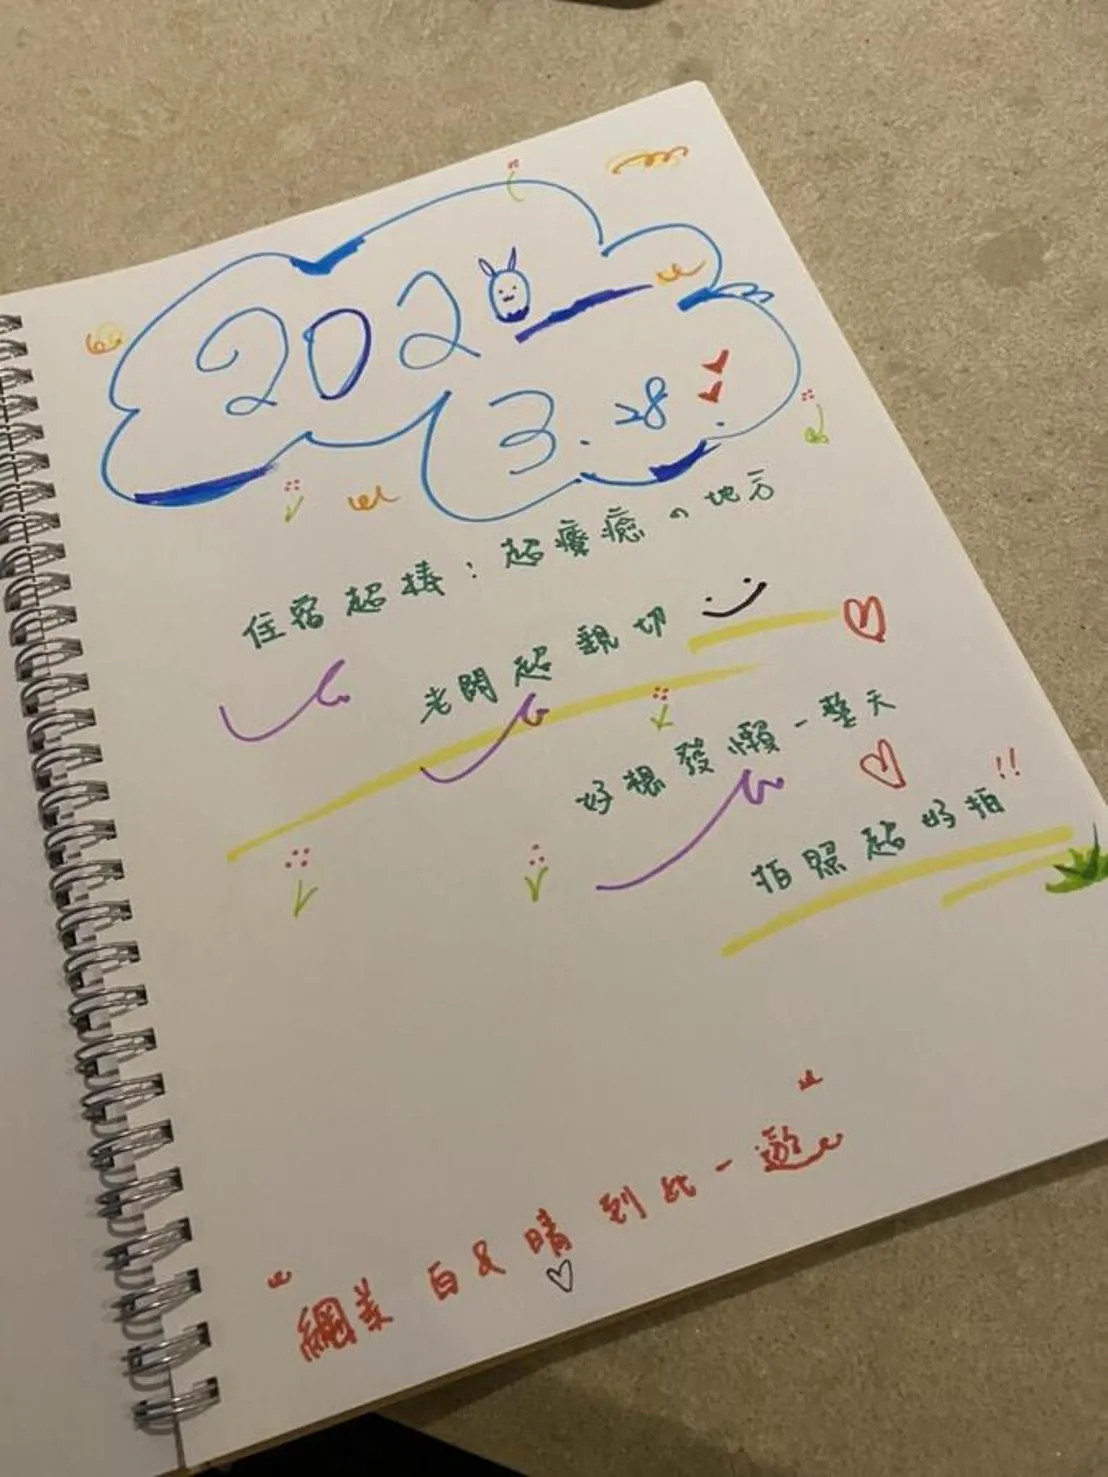 202
3.28
住宿超棒！超療癒の地方
老闆超親切
好想發懶一整天
拍照超好拍!!
網美白又晴到此一遊